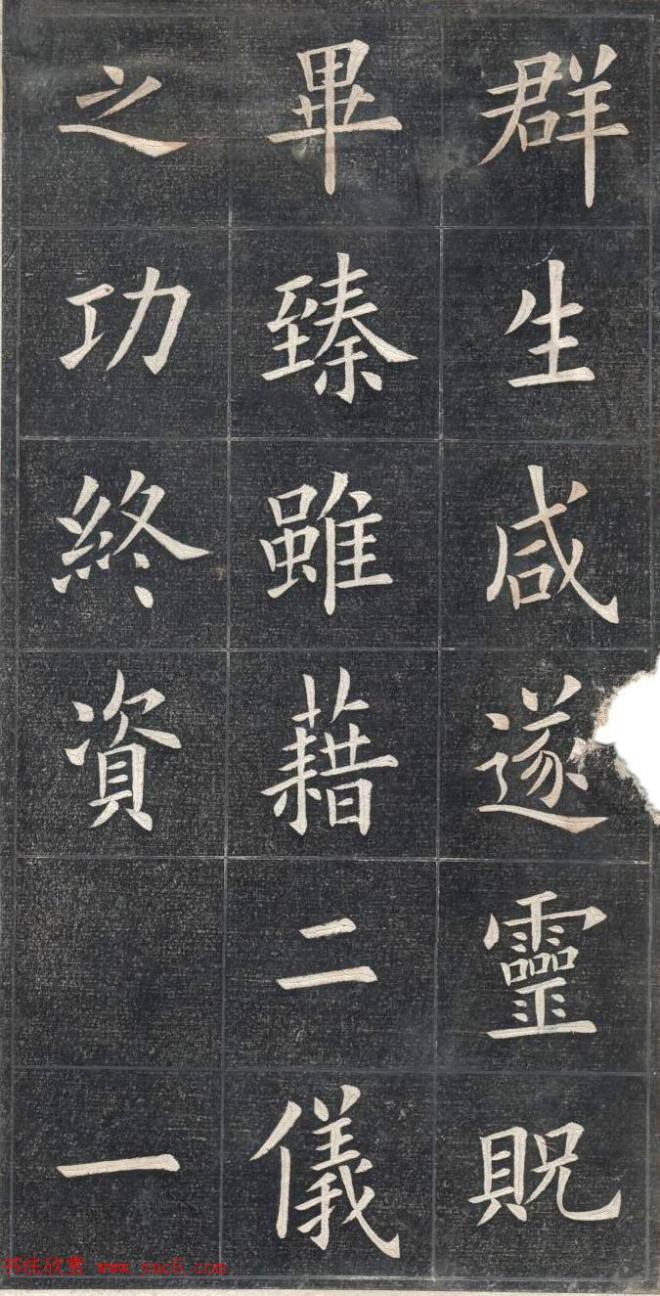 群生咸遂靈貺
畢臻雖藉二儀
之功終資一
书法欣赏 www.yac8.com